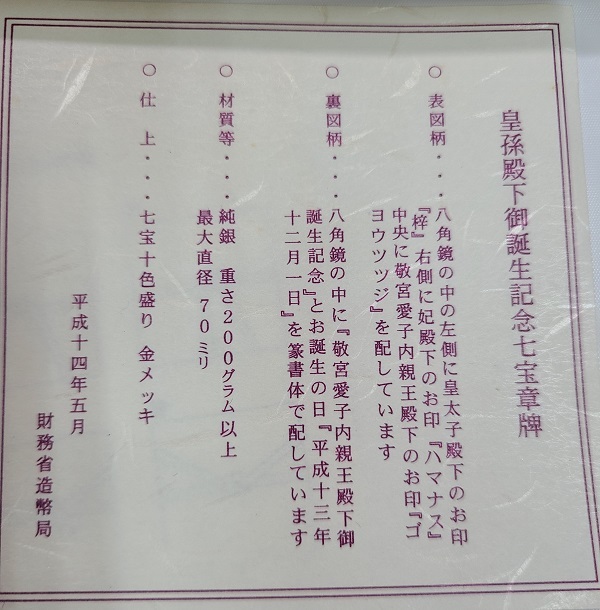 皇孫殿下御誕生記念七宝章牌
○ 表図柄・・・八角鏡の中の左側に皇太子殿下のお印
『梓』右側に妃殿下のお印『ハマナス』
中央に敬宮愛子内親王殿下のお印『ゴ
ヨウツツジ』を配しています
○ 裏図柄・・・八角鏡の中に『敬宮愛子内親王殿下御
誕生記念』とお誕生の日『平成十三年
十二月一日』を篆書体で配しています
○ 材質等・・・純銀 重さ200グラム以上
最大直径 70ミリ
○ 仕 上・・・七宝十色盛り 金メッキ
平成十四年五月
財務省造幣局